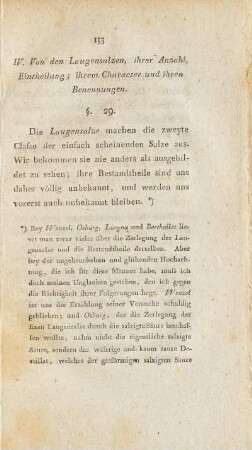 153
IV. Von den Laugensalzen, ihrer Anzahl,
Eintheilung; ihrem Character und ihren
Benennungen.
§. 29.
Die Laugensalze machen die zweyte
Classe der einfach scheinenden Salze aus.
Wir bekommen sie nie anders als ausgebil-
det zu sehen; ihre Bestandtheile sind uns
daher völlig unbekannt, und werden uns
vorerst auch unbekannt bleiben. *)
*) Bey Wenzel, Osburg, Lorgna und Berthollet lie-
set man zwar vieles über die Zerlegung der Lau-
gensalze und die Bestandtheile derselben. Aber
bey der ungeheuchelten und glühenden Hochach-
tung, die ich für diese Männer habe, muß ich
doch meinen Unglauben gestehen, den ich gegen
die Richtigkeit ihrer Folgerungen hege. Wenzel
ist uns die Erzählung seiner Versuche schuldig
geblieben; und Osburg, der die Zerlegung der
fixen Laugensalze durch die salzigte Säure beschaf-
fen wollte, nahm nicht die eigentliche salzigte
Säure, sondern das wäßrige und kaum saure De-
stillat, welches der gasförmigen salzigten Säure